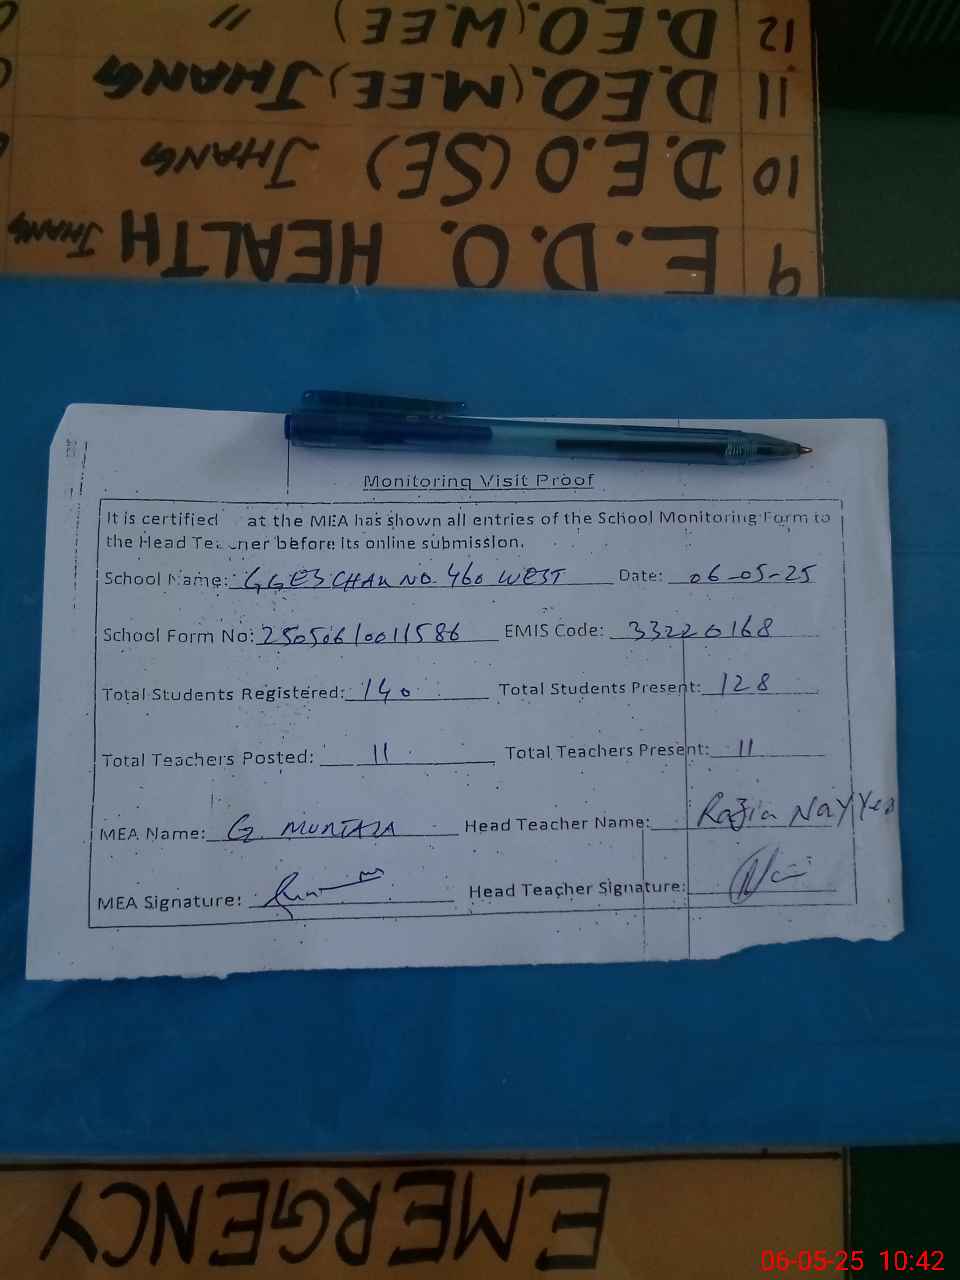 12 D.E.O.(W.EE) "
11 D.E.O.(M.EE) JHANG
10 D.E.O (SE) JHANG
9 E.D.O. HEALTH JHANG
Monitoring Visit Proof
It is certified at the MEA has shown all entries of the School Monitoring Form to
the Head Teacher before its online submission.
School Name: GGES CHAK NO. 460 WEST Date: 06-05-25
School Form No: 25050610011586 EMIS Code: 33220168
Total Students Registered: 140 Total Students Present: 128
Total Teachers Posted: 11 Total Teachers Present: 11
MEA Name: G. MURTAZA Head Teacher Name: Razia Nayyer
MEA Signature: Head Teacher Signature:
EMERGENCY
06-05-25 10:42